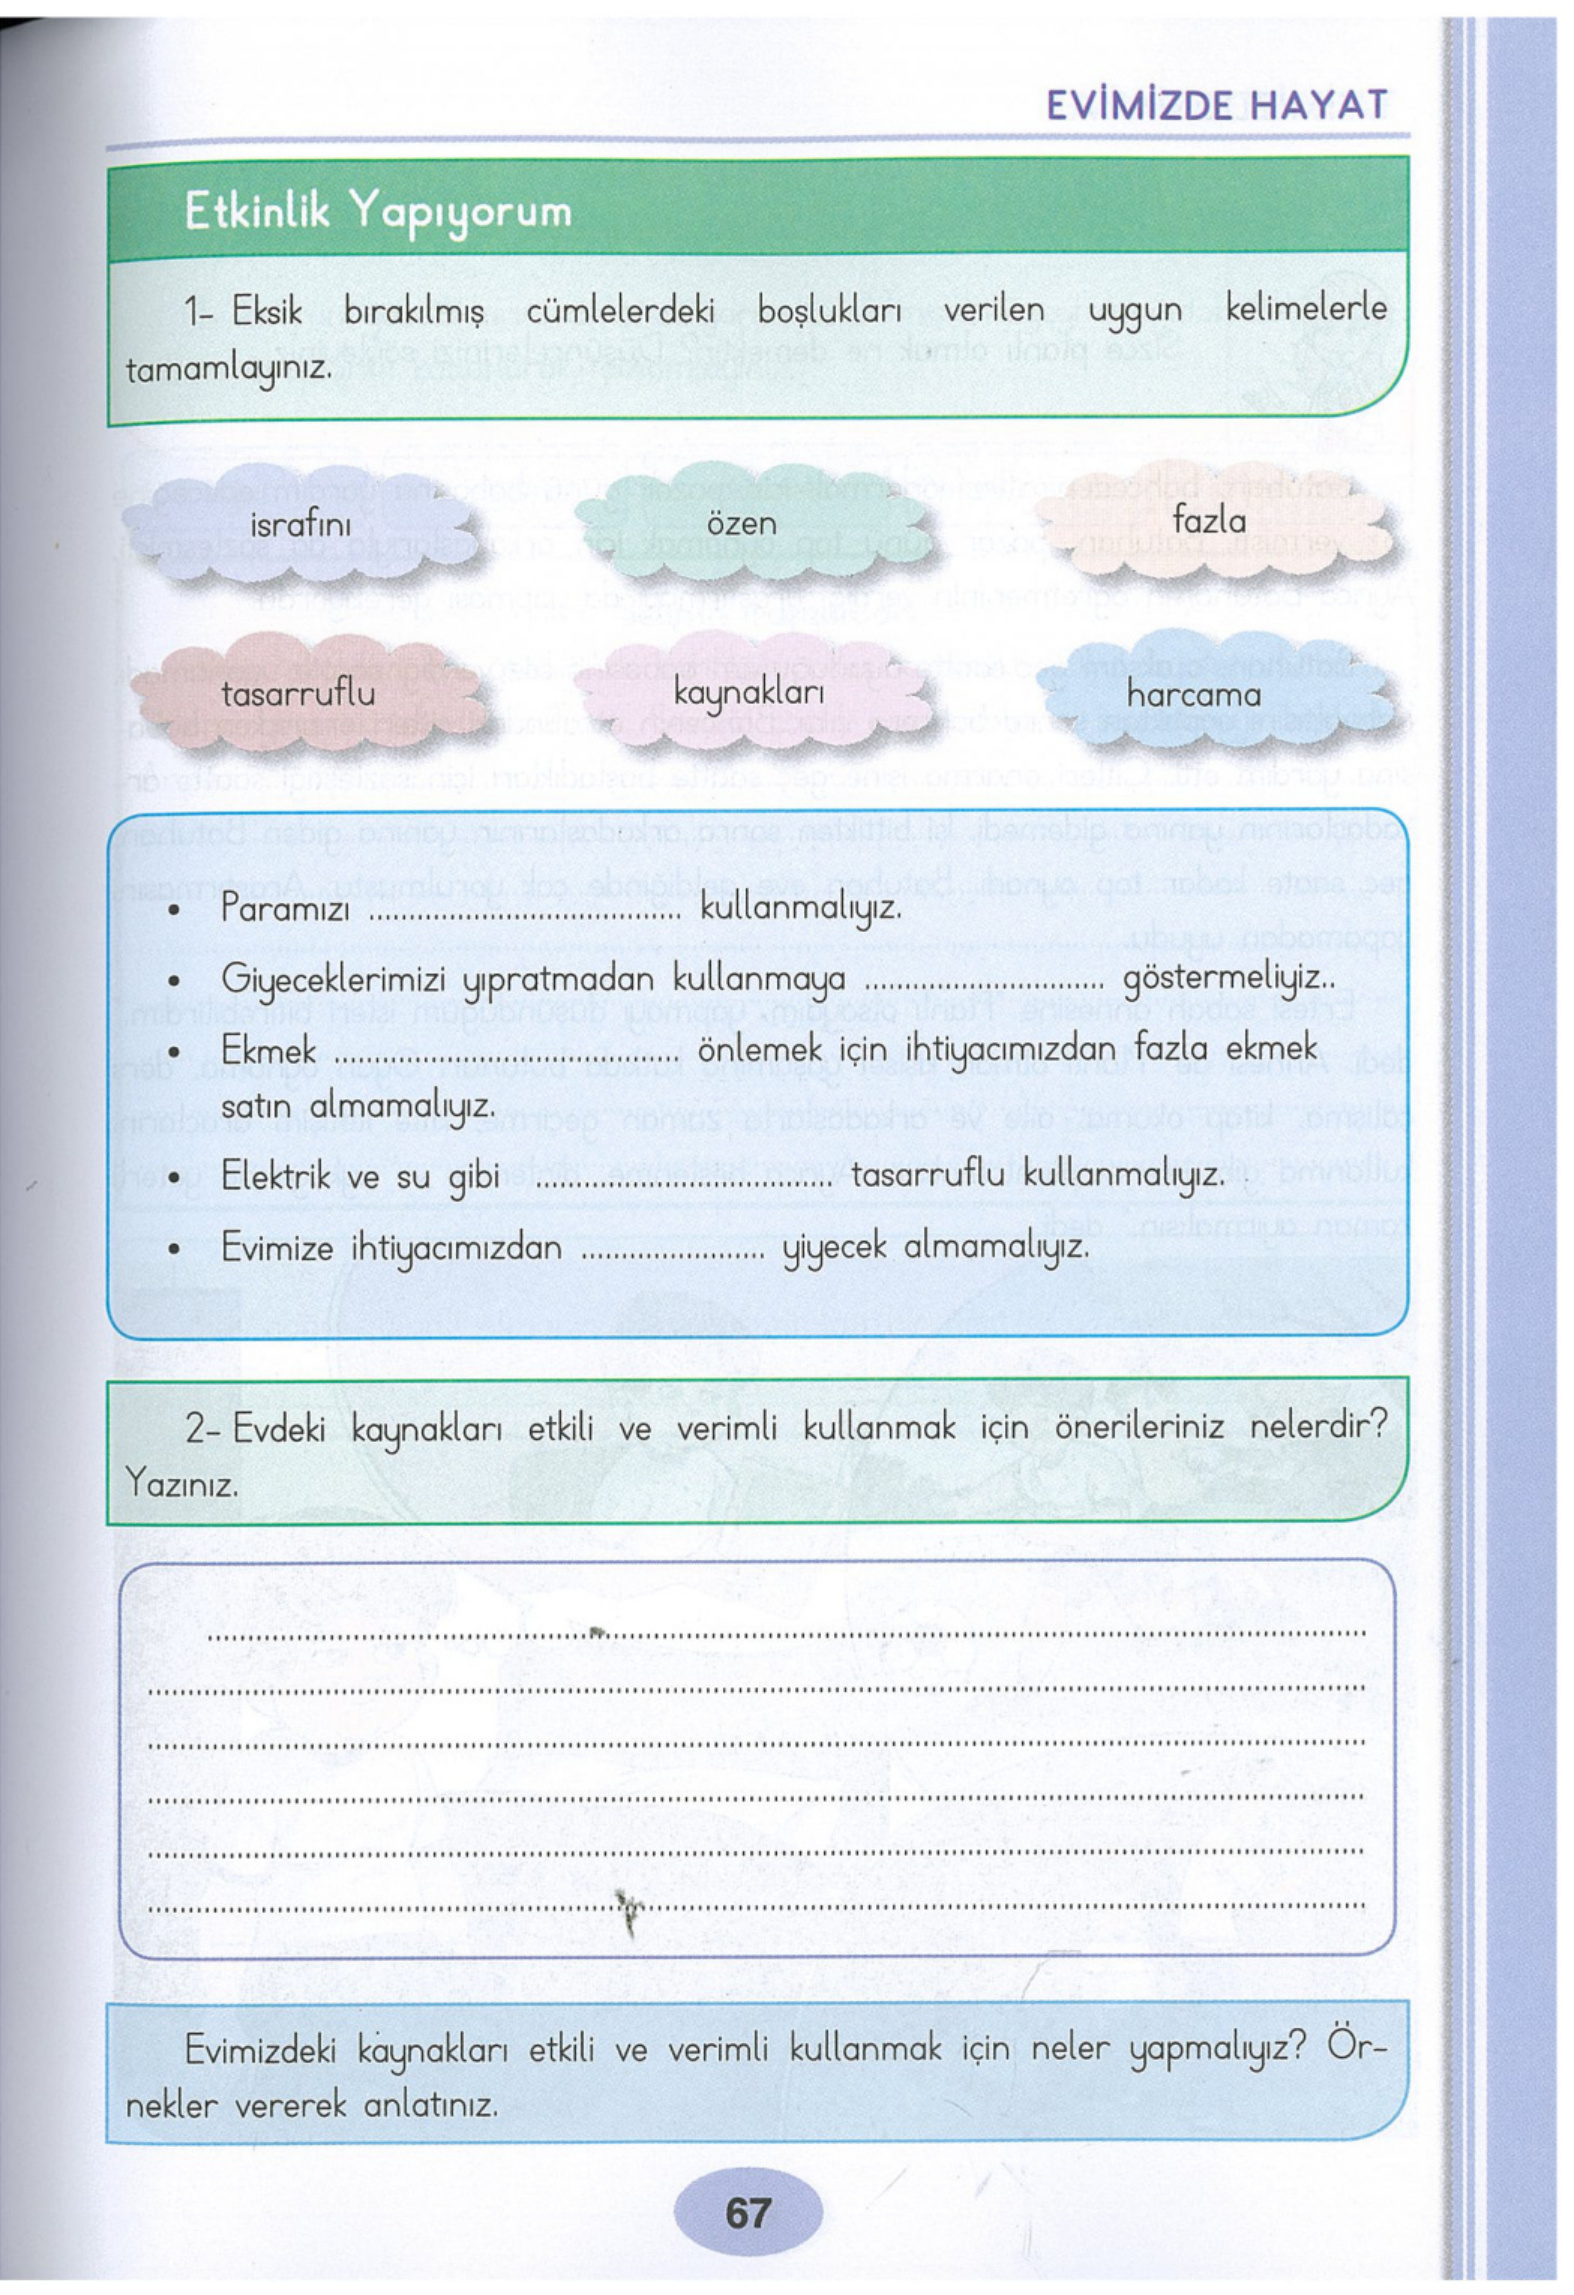 EVİMİZDE HAYAT
Etkinlik Yapıyorum
1- Eksik bırakılmış cümlelerdeki boşlukları verilen uygun kelimelerle
tamamlayınız.
israfını özen fazla
tasarruflu kaynakları harcama
• Paramızı ....................................... kullanmalıyız.
• Giyeceklerimizi yıpratmadan kullanmaya .............................. göstermeliyiz..
• Ekmek ........................................... önlemek için ihtiyacımızdan fazla ekmek
satın almamalıyız.
• Elektrik ve su gibi ..................................... tasarruflu kullanmalıyız.
• Evimize ihtiyacımızdan ....................... yiyecek almamalıyız.
2- Evdeki kaynakları etkili ve verimli kullanmak için önerileriniz nelerdir?
Yazınız.
Evimizdeki kaynakları etkili ve verimli kullanmak için neler yapmalıyız? Ör-
nekler vererek anlatınız.
67